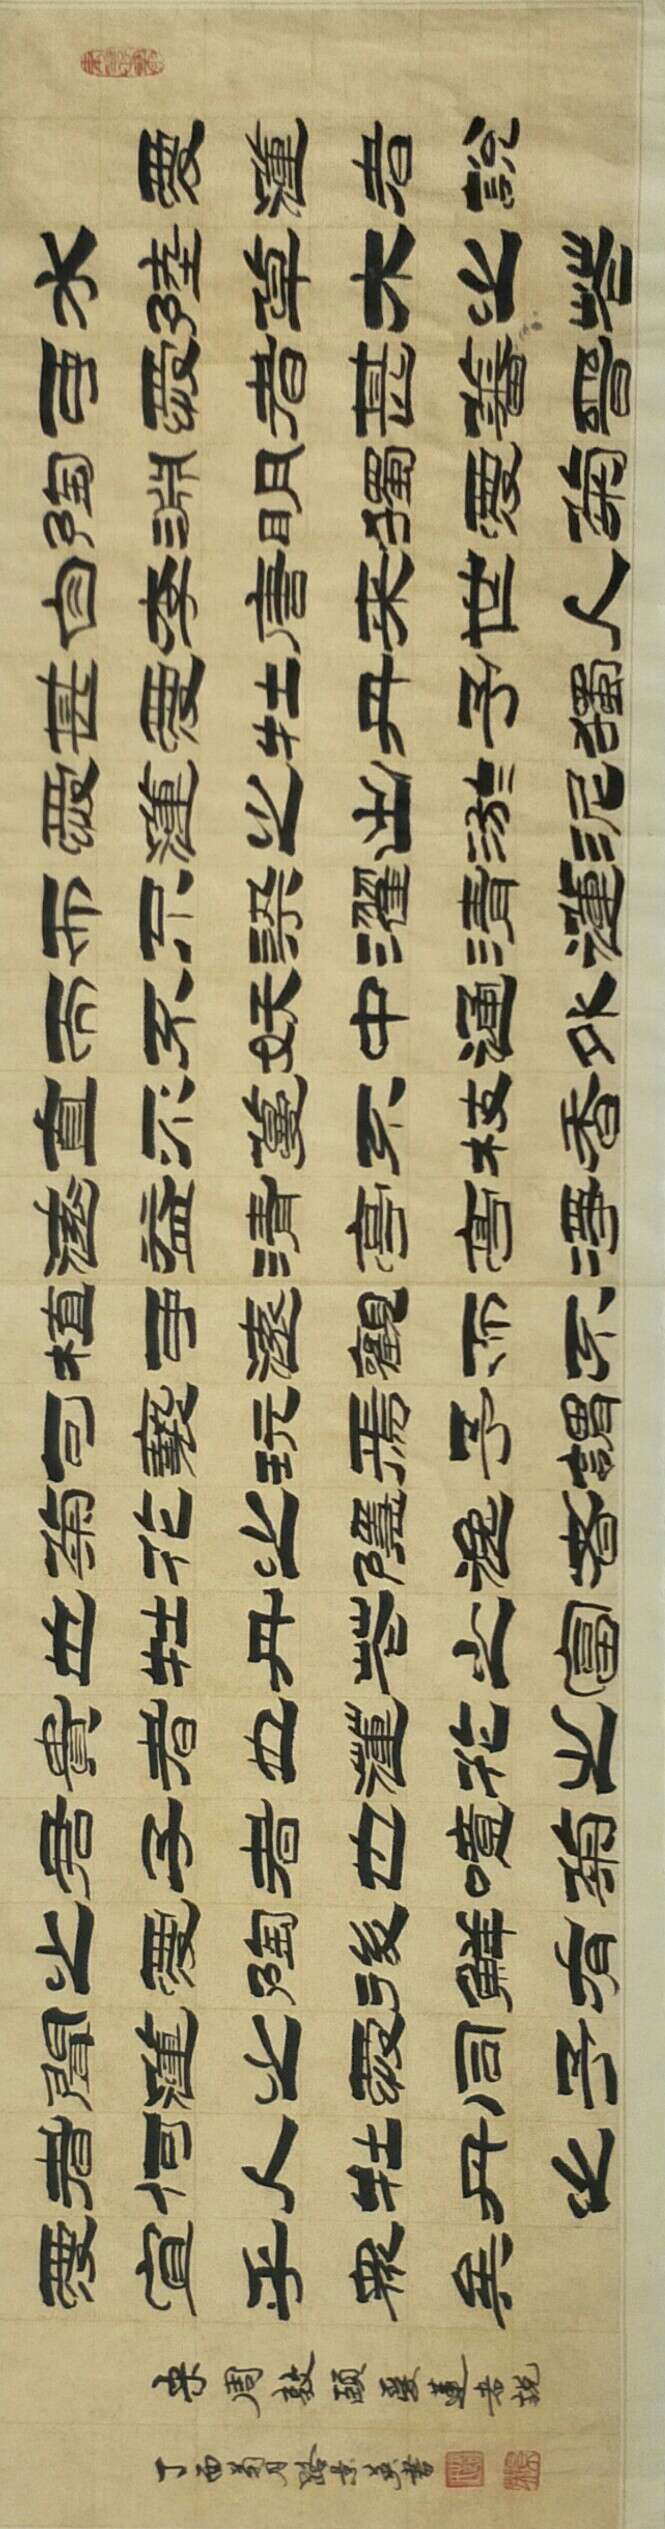 愛蓮者說
水陸草木之花
可愛者甚蕃晉
陶淵明獨愛菊
自李唐來世人
甚愛牡丹予獨
愛蓮之出淤泥
而不染濯清蓮
而不妖中通外
直不蔓不枝香
遠益清亭亭淨
植可遠觀而不
可褻玩焉予謂
菊花之隱逸者
也牡丹花之富
貴者也蓮花之
君子者也噫菊
之愛陶後鮮有
聞蓮之愛同予
者何人牡丹之
愛宜乎眾矣
宋周敦頤愛蓮者說
丁酉菊月路景英書